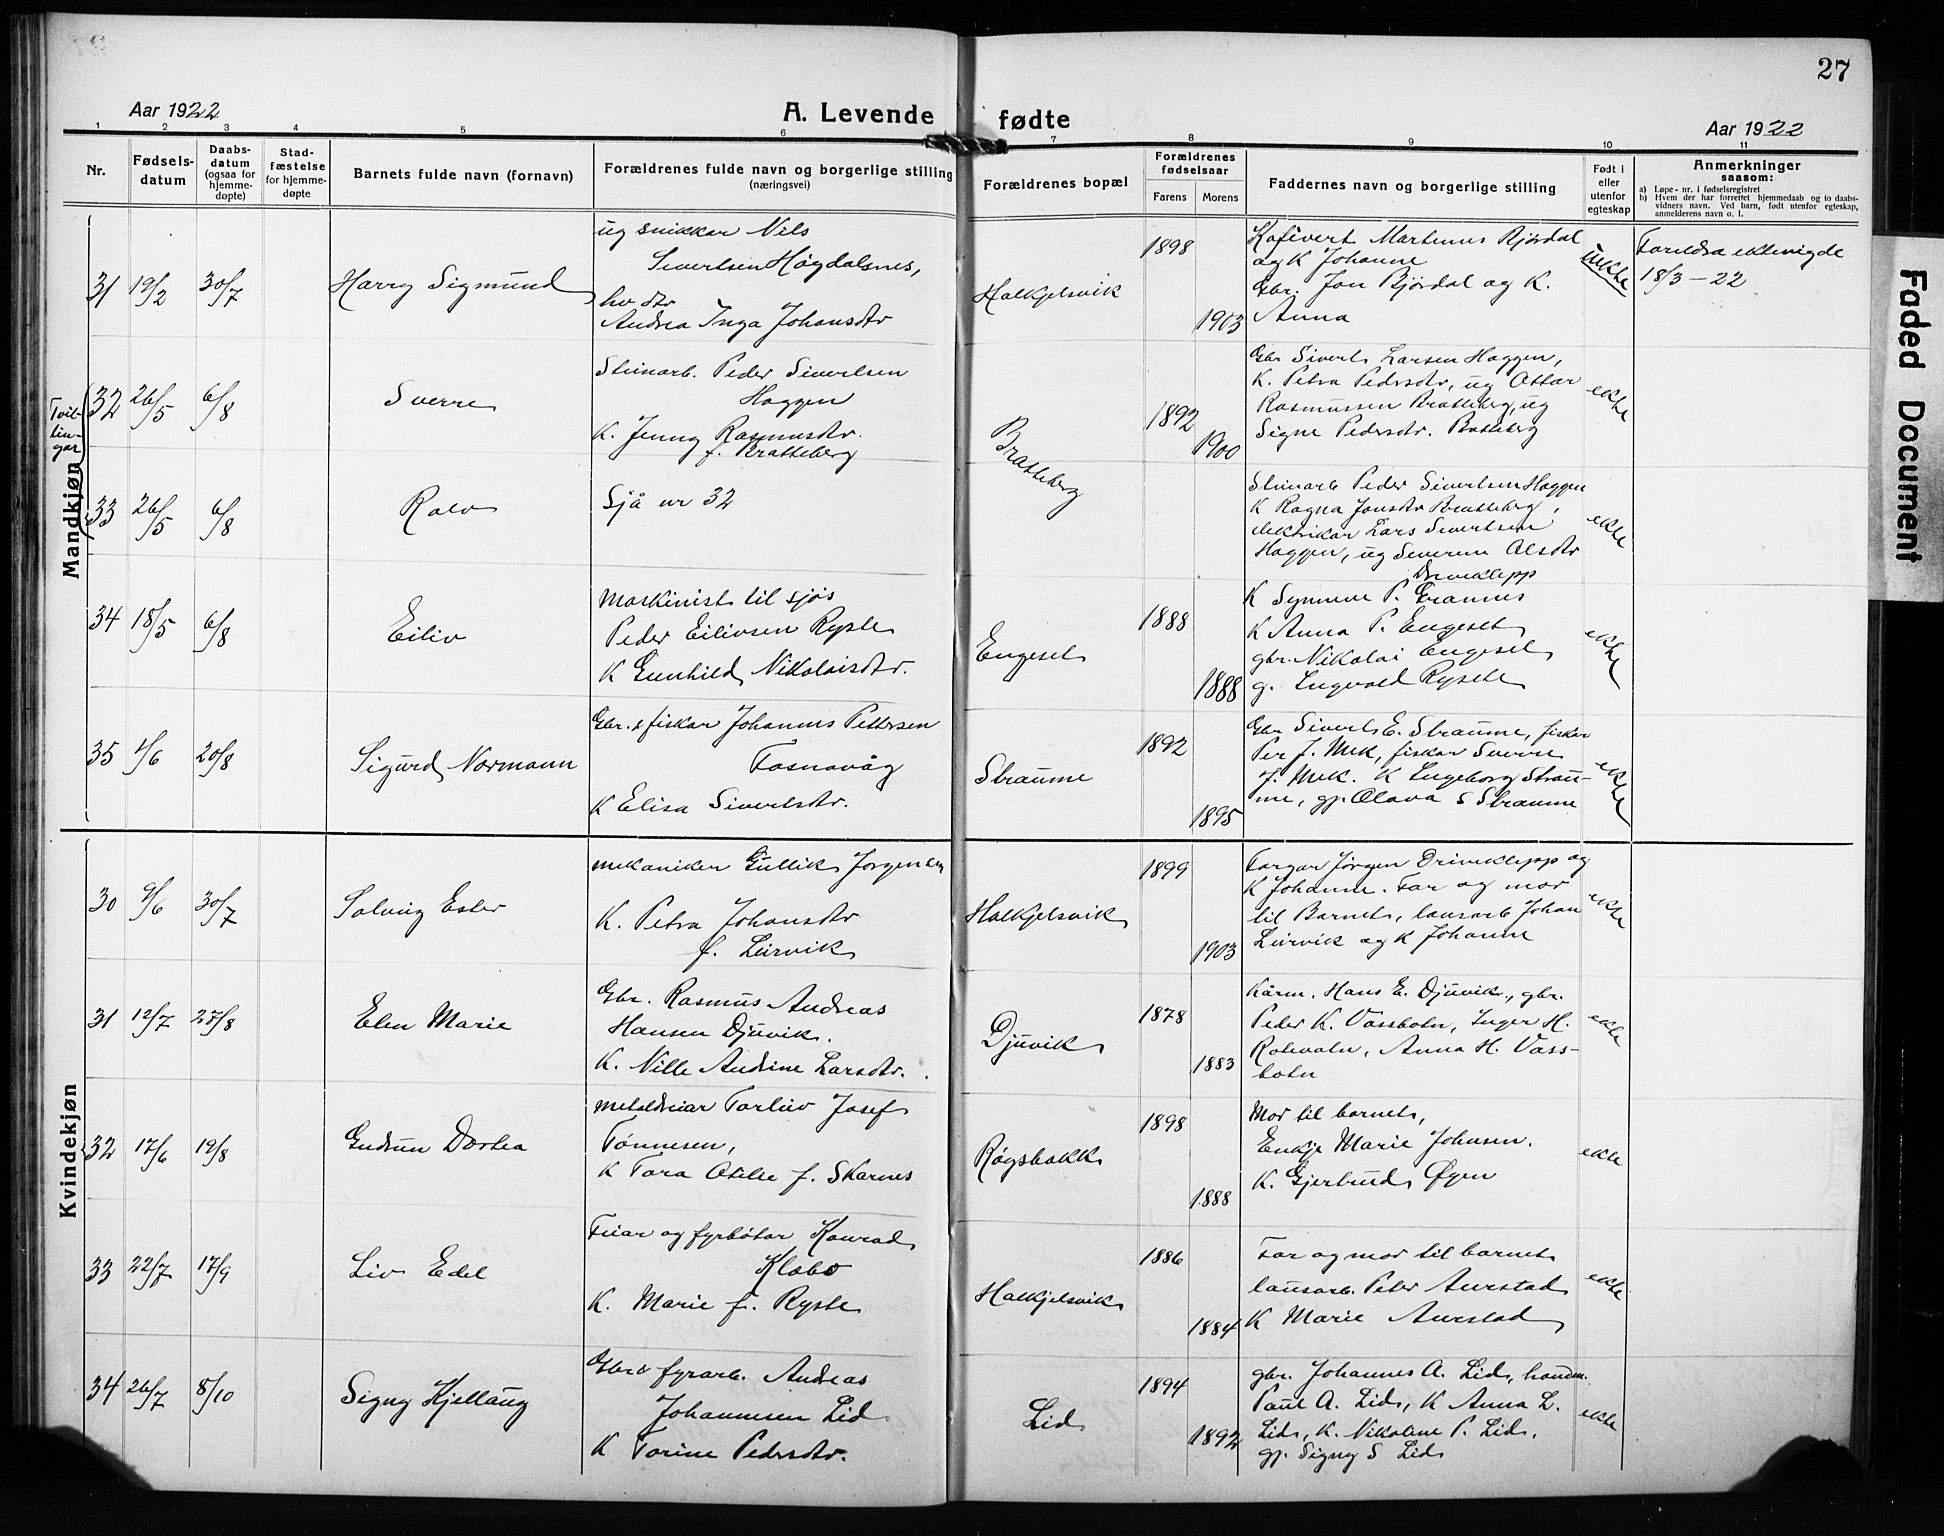 27
Aar 1922
A. Levende fødte
Aar 1922
1 2 3 4 5 6 7 8 9 10 11
Nr.
Fødsels-
datum
Daabs-
datum
(ogsaa for
hjemme-
døpte)
Stad-
fæstelse
for hjemme-
døpte
Barnets fulde navn (fornavn)
Forældrenes fulde navn og borgerlige stilling
(næringsvei)
Forældrenes bopæl
Forældrenes
fødselsaar
Farens
Morens
Faddernes navn og borgerlige stilling
Født i
eller
utenfor
egteskap
Anmerkninger
saasom:
a) Løpe-nr. i fødselsregistret
b) Hvem der har forrettet hjemmedaab og to daabs-
vidners navn. Ved barn, født utenfor egteskap,
anmelderens navn o. l.
Mandkjøn
31 19/2 30/7
Harry Sigmund
ug snikkar Nils
Sivertsen Høgdalsnes,
hv dtr
Andrea Inga Johansdtr
Halkjelsvik
1898
1903
Martinus Bjørdal
og K Johanne
Gbr. Jon Bjørdal og K.
Anna
uekte
Foreldra ektevigde
18/3-22
Tvil-
lin-
gar
32 26/5 6/8
Sverre
Steinarb. Peder Sivertsen
Haggen
K. Jenny Rasmusdtr.
f. Bratteberg
Bratteberg
1892
1900
Gbr Sivert Larsen Haggen,
K. Petra Pedersdtr, ug Ottar
Rasmussen Bratteberg, ug
Signe Pedersdtr. Bratteberg
ekte
33 26/5 6/8
Rolv
Sjå nr 32
Steinarb Peder Sivertsen Haggen
K Ragna Jonsdtr Bratteberg,
elektrikar Lars Sivertsen
Haggen, ug Severine Olsdtr
Driveklepp
ekte
34 18/5 6/8
Eiliv
Maskinist til sjøs
Peder Eilivsen Ryste
K Gunhild Nikolaisdtr.
Engeset
1888
1888
K Synnøve P. Grannes
K Anna P. Engeset
gbr. Nikolai Engeset
g. Ingvald Ryste
ekte
35 4/6 20/8
Sigurd Normann
Gbr. & fiskar Johannes Pettersen
Fosnavåg
K Elisa Sivertsdtr.
Straume
1892
1895
Gbr Sivert E. Straume, fisker
Per J. Myk, fiskar Sverre
J. Myk. K Ingeborg Strau-
me, gp. Olava S Straume
ekte
Kvindekjøn
30 9/6 30/7
Solveig Ester
mekaniker Gullik Jørgensen
K. Petra Johansdtr
f. Leirvik
Halkjelsvik
1899
1903
Fargar Jørgen Driveklepp og
K Johanne. Far og mor
til Barnet, lausarb Johan
Leirvik og K Johanne
ekte
31 12/7 27/8
Elen Marie
Gbr. Rasmus Andreas
Hansen Djuvik.
K. Nille Andrine Larsdtr.
Djuvik
1878
1883
Kårm. Hans E. Djuvik, gbr.
Peder K. Vassbotn, Inger H.
Rotevatn, Anna H. Vass-
botn
ekte
32 17/6 19/8
Gudrun Dortea
metaldreiar Torleiv Josef
Tønnesen,
K Tora Otilie f. Skarnes
Røysbakk
1898
1888
Mor til barnet,
Enkje Marie Johnsen.
K. Gjertrud Øyen
ekte
33 22/7 17/9
Liv Edel
Feiar og fyrbøtar Konrad
Klobo
K. Marie f. Ryste
Halkjelsvik
1886
1884
Far og mor til barnet
lausarb. Peter Aurstad
K Marie Aurstad
ekte
34 26/7 8/10
Signy Kjellaug
Gbr & fyrarb. Andreas
Johannesen Lid
K Torine Pedersdtr.
Lid
1894
1892
gbr. Johannes A. Lid, handm.
Paul A. Lid, K Anna L.
Lid, K. Nikoline P. Lid,
gp. Signy S Lid
ekte
Faded Document